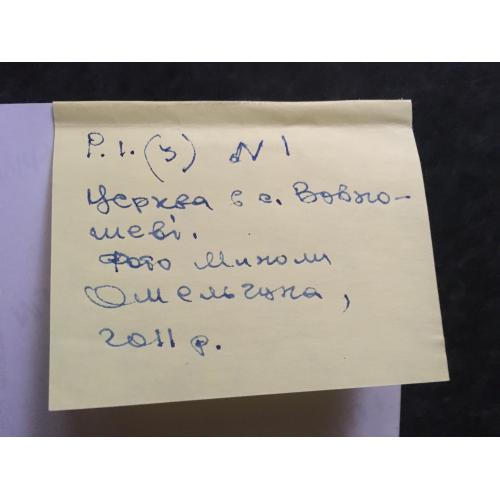 Р. 1. (3) N 1
Церква в с. Вовко-
шеві.
Фото Миколи
Омельчука,
2011 р.